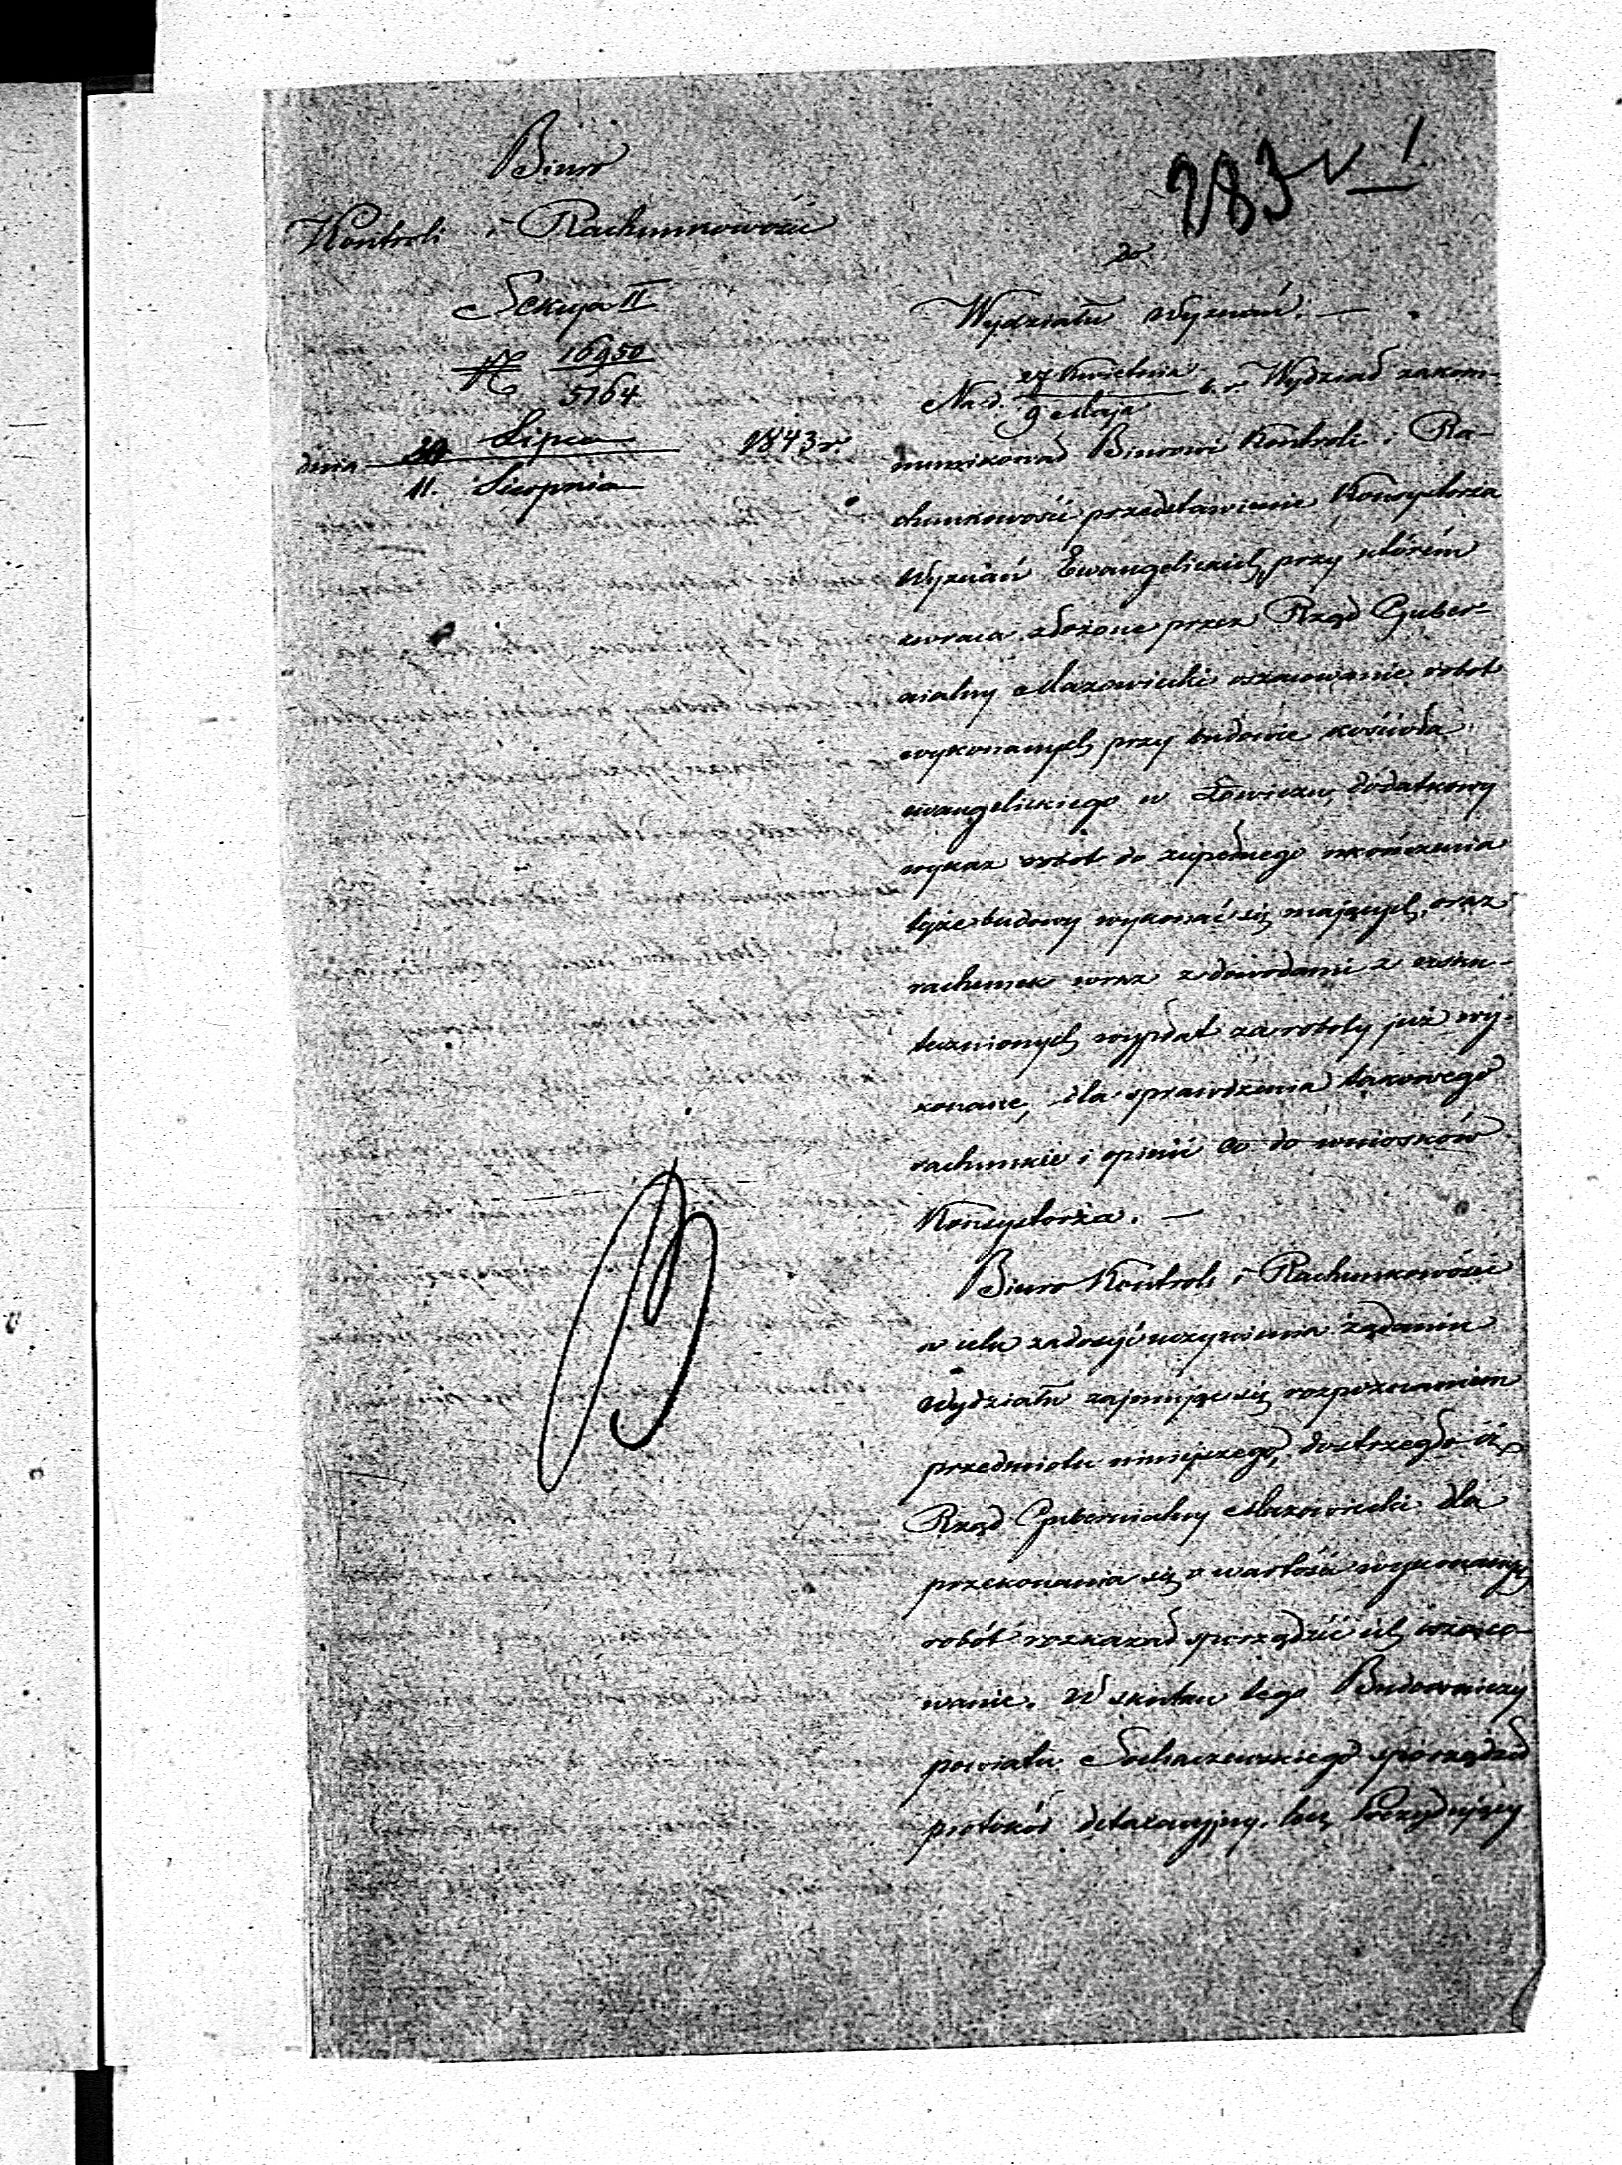 Biuro
Kontroli i Rachunkowości
Sekcya II
№ 16950
5764
dnia 30 Lipca 1843 r.
11. Sierpnia
283
do
Wydziału Wyznań. —
Na d. 27 Kwietnia b. r. Wydział zakom-
9 Maja
munikował Biurowi Kontroli i Ra-
chunkowości przedstawienie Konsystorza
Wyznań Ewangelickich, przy którém
zwraca złożone przez Rząd Guber-
nialny Mazowiecki oszacowanie robot
wykonanych przy budowie kościoła
ewangelickiego w Łowiczu, dodatkowy
wykaz robót do zupełnego ukończenia
tejże budowy wykonać się mających, oraz
rachunek wraz z dowodami z usku-
tecznionych wypłat za roboty już wy-
konane, dla sprawdzenia takowego
rachunku i opinii co do wniosków
Konsystorza. —
Biuro Kontroli i Rachunkowości
w celu zadosyć uczynienia żądaniu
Wydziału zajmując się rozpoznaniem
przedmiotu niniejszego, dostrzegło iż
Rząd Gubernialny Mazowiecki dla
przekonania się o wartości wykonanych
robót rozkazał sporządzić ich oszaco-
wanie. W skutku tego Budowniczy
powiatu Sochaczewskiego sporządził
protokół detaxacyjny, lecz Prezydujący